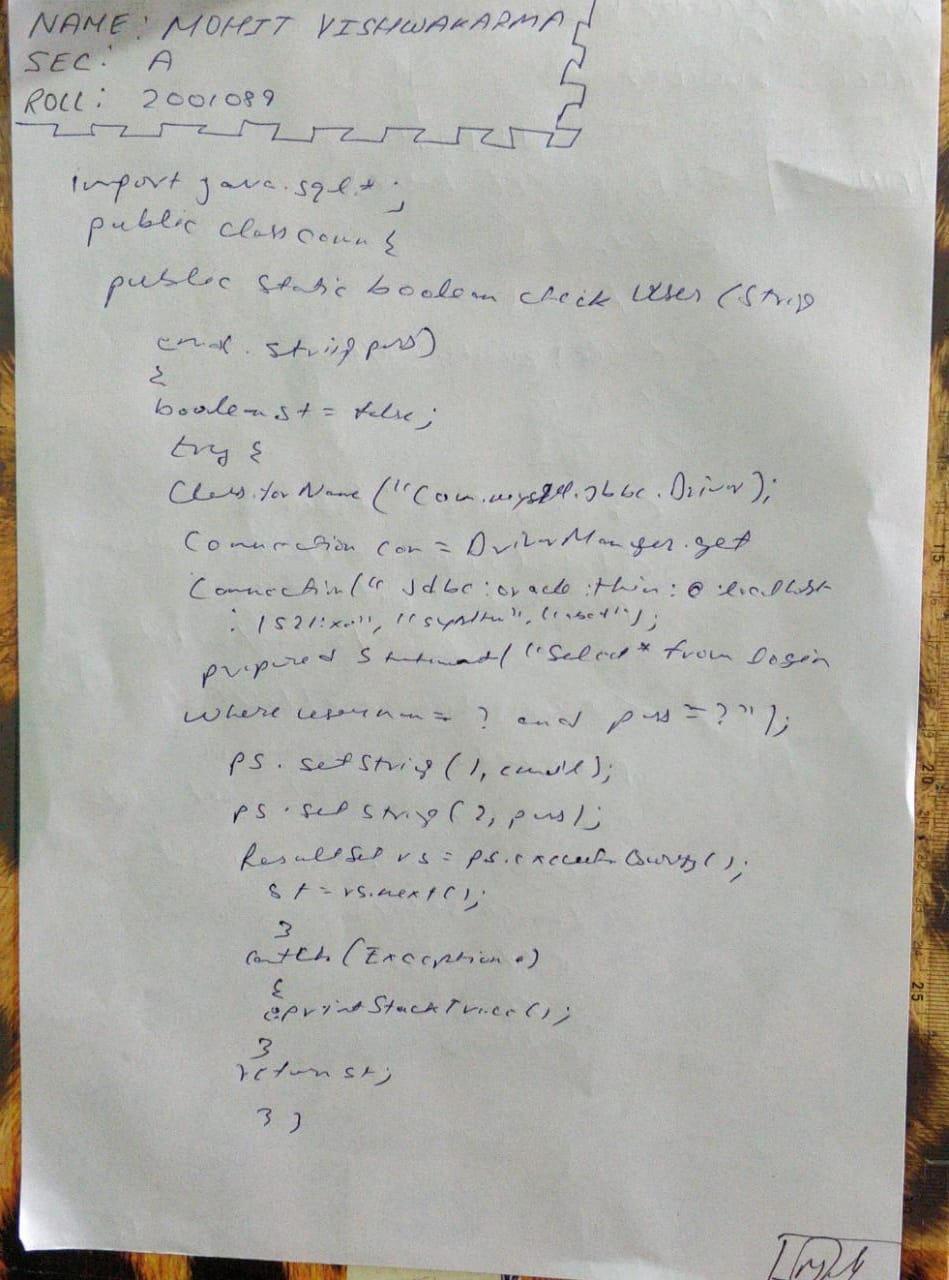 NAME: MOHIT VISHWAKARMA
SEC: A
ROLL: 2001089
import java.sql.*;
public class conn {
public static boolean check User (String
email. String pass)
{
boolean st = false;
try {
Class.forName ("com.mysql.jdbc.Driver);
Connection con = DriverManager.get
Connection(" jdbc:oracle:thin:@:localhost
:1521:xe", "system",
prepared Statement( "Select * from login
where username = ? and pass =?");
ps. setString (1, email);
ps. set String (2, pass);
ResultSet rs = ps.executeQuery();
st = rs.next();
}
catch (Exception e)
{
e.printStackTrace();
}
return st;
} }
15
20
25